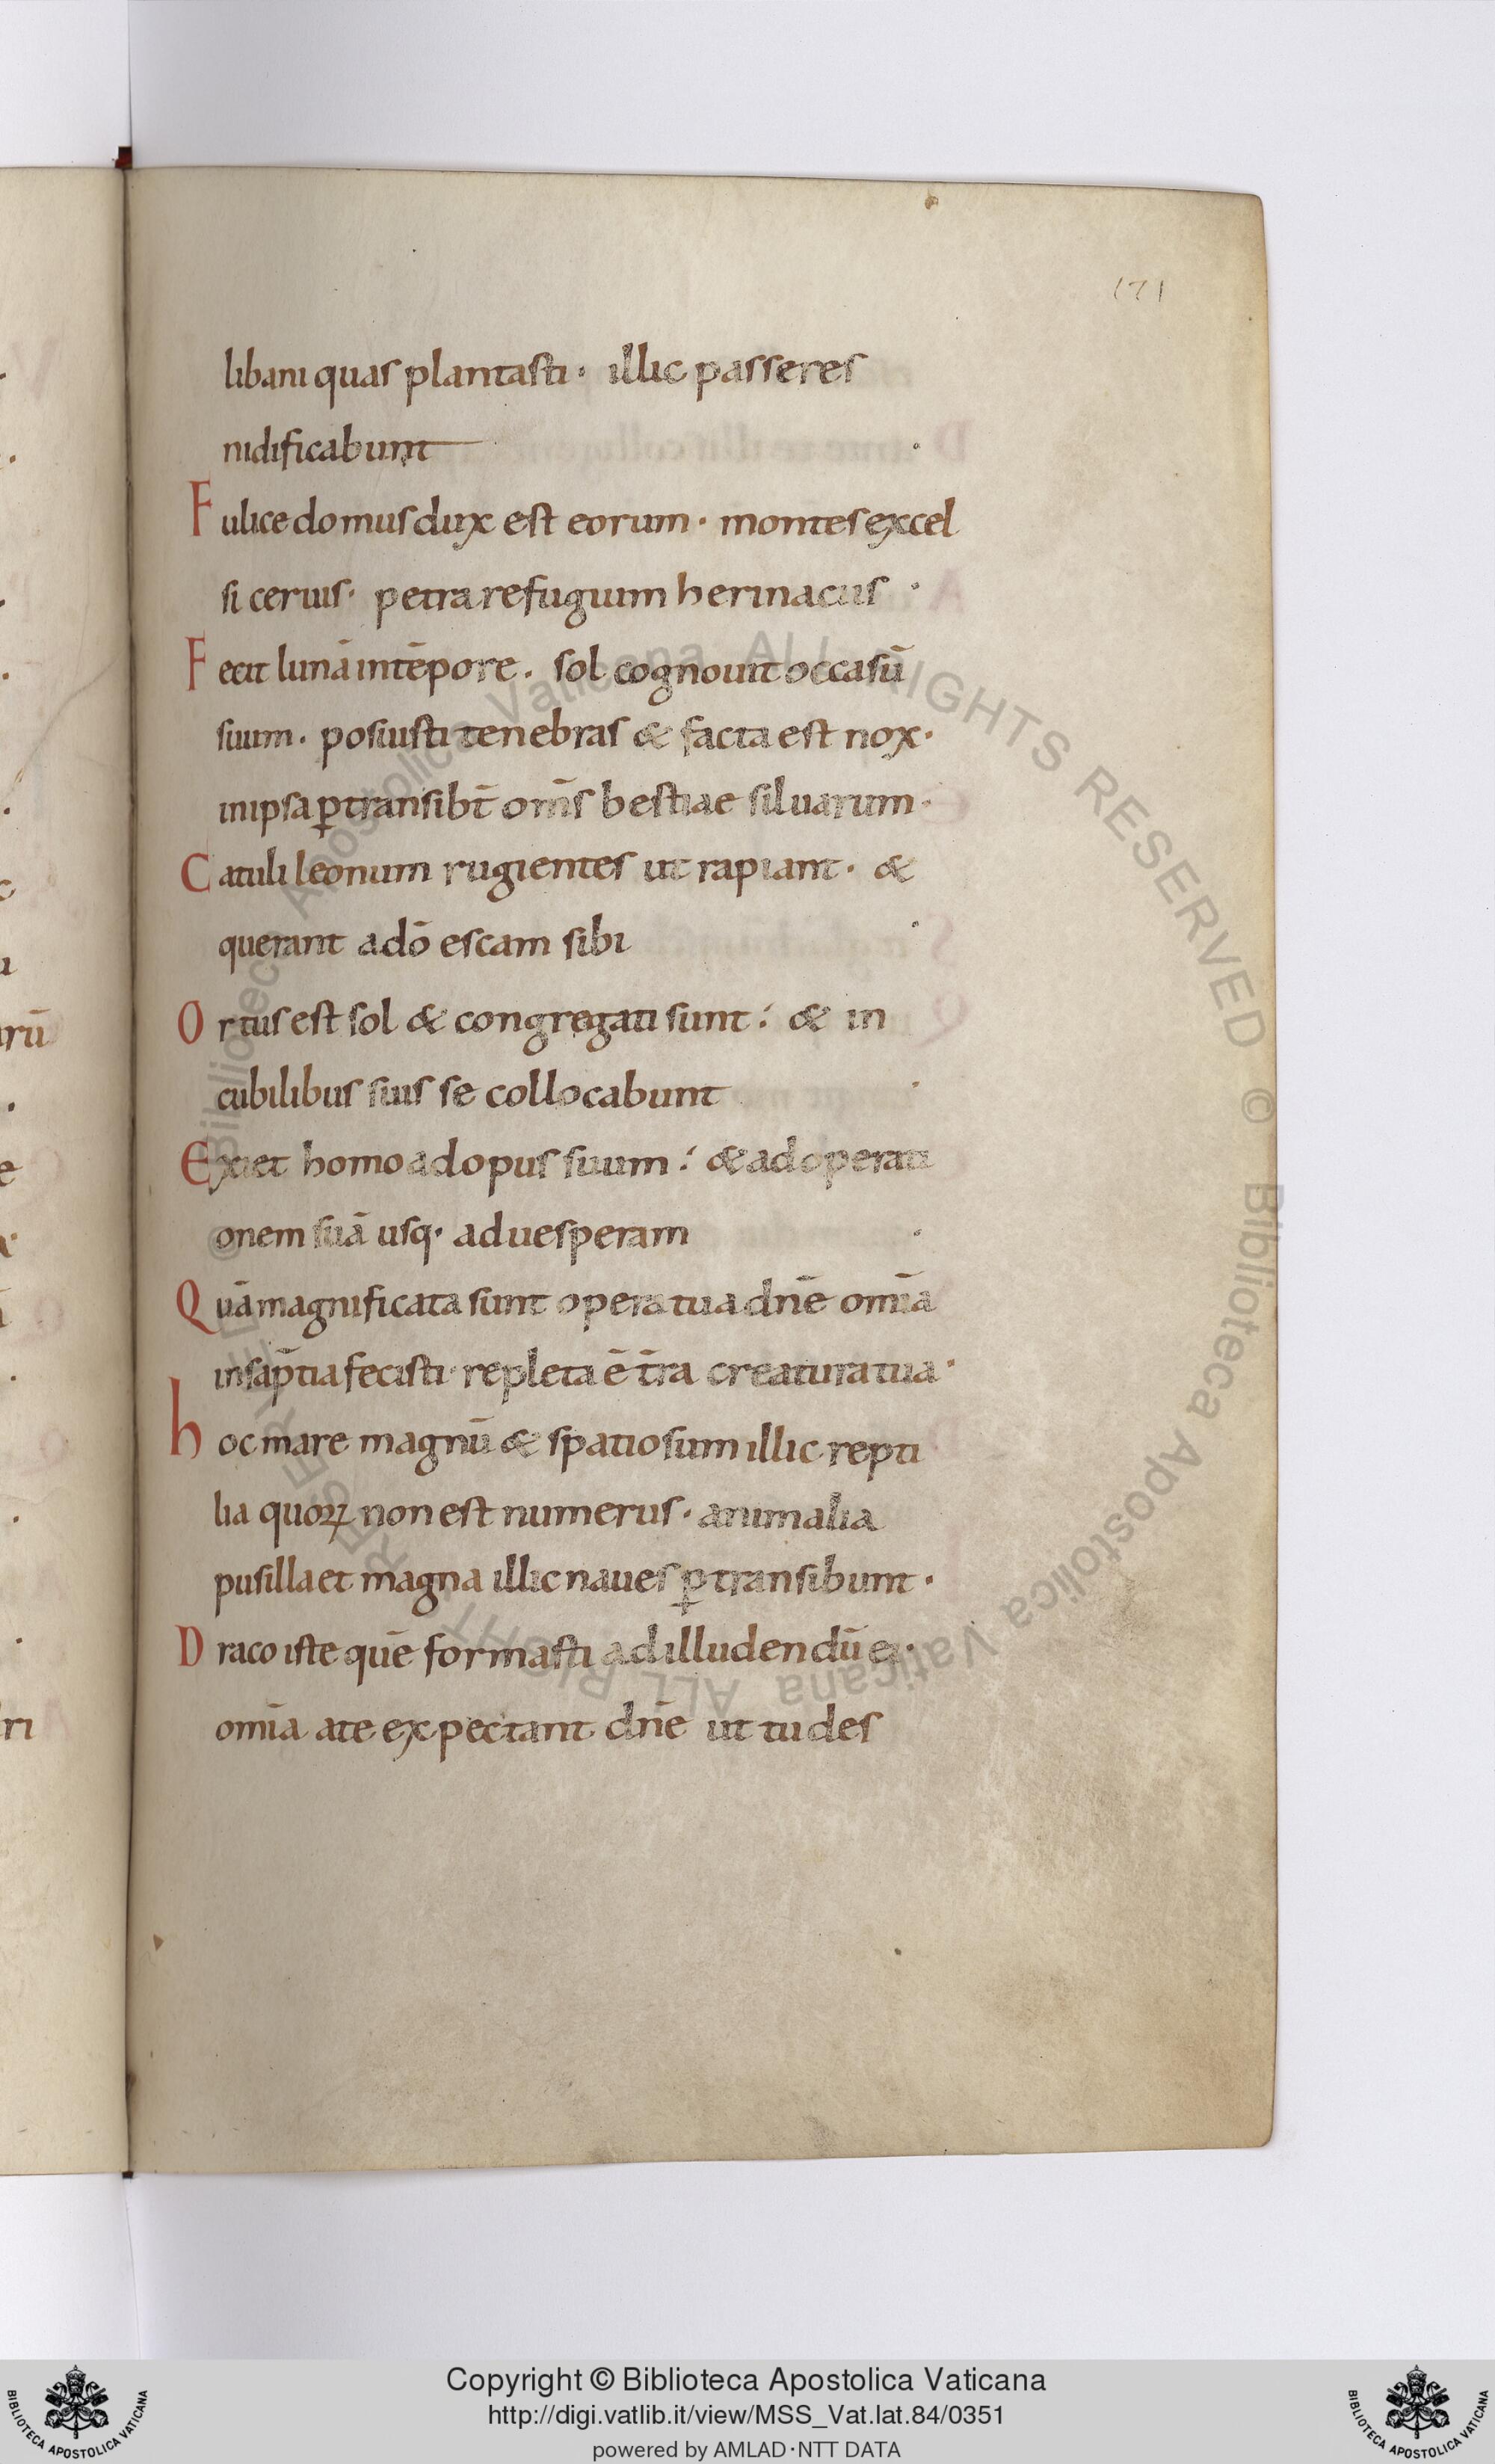 171
libani quas plantasti· illic passeres
nidificabunt ·
Fulice domus dux est eorum· montes excel
si ceruis· petra refugium herinacus ·
Fecit lunā in tēpore. sol cognouit occasū
suum. posiusti tenebras & facta est nox·
in ipsa ꝑtransibt̄ om̄s bestiae siluarum·
Catuli leonum rugientes ut rapiant· &
querant a dō escam sibi ·
Ortus est sol & congregati sunt: & in
cubilibus suis se collocabunt ·
Exiet homo ad opus suum: & ad operati
onem suā usq· ad uesperam ·
Quā magnificata sunt opera tua dn̄e om̄ia
in sap̄tia fecisti· repleta ē t̄ra creatura tua·
hoc mare magnū & spatiosum illic repti
lia quoꝝ non est numerus· animalia
pusilla et magna illic naues ꝑtransibunt·
Draco iste quē formasti ad illudendū ei·
om̄ia a te expectant dn̄e ut tu des
© Biblioteca Apostolica Vaticana ALL RIGHTS RESERVED © Biblioteca Apostolica Vaticana ALL RIGHTS RESERVED
BIBLIOTECA APOSTOLICA VATICANA
Copyright © Biblioteca Apostolica Vaticana
http://digi.vatlib.it/view/MSS_Vat.lat.84/0351
powered by AMLAD·NTT DATA
BIBLIOTECA APOSTOLICA VATICANA